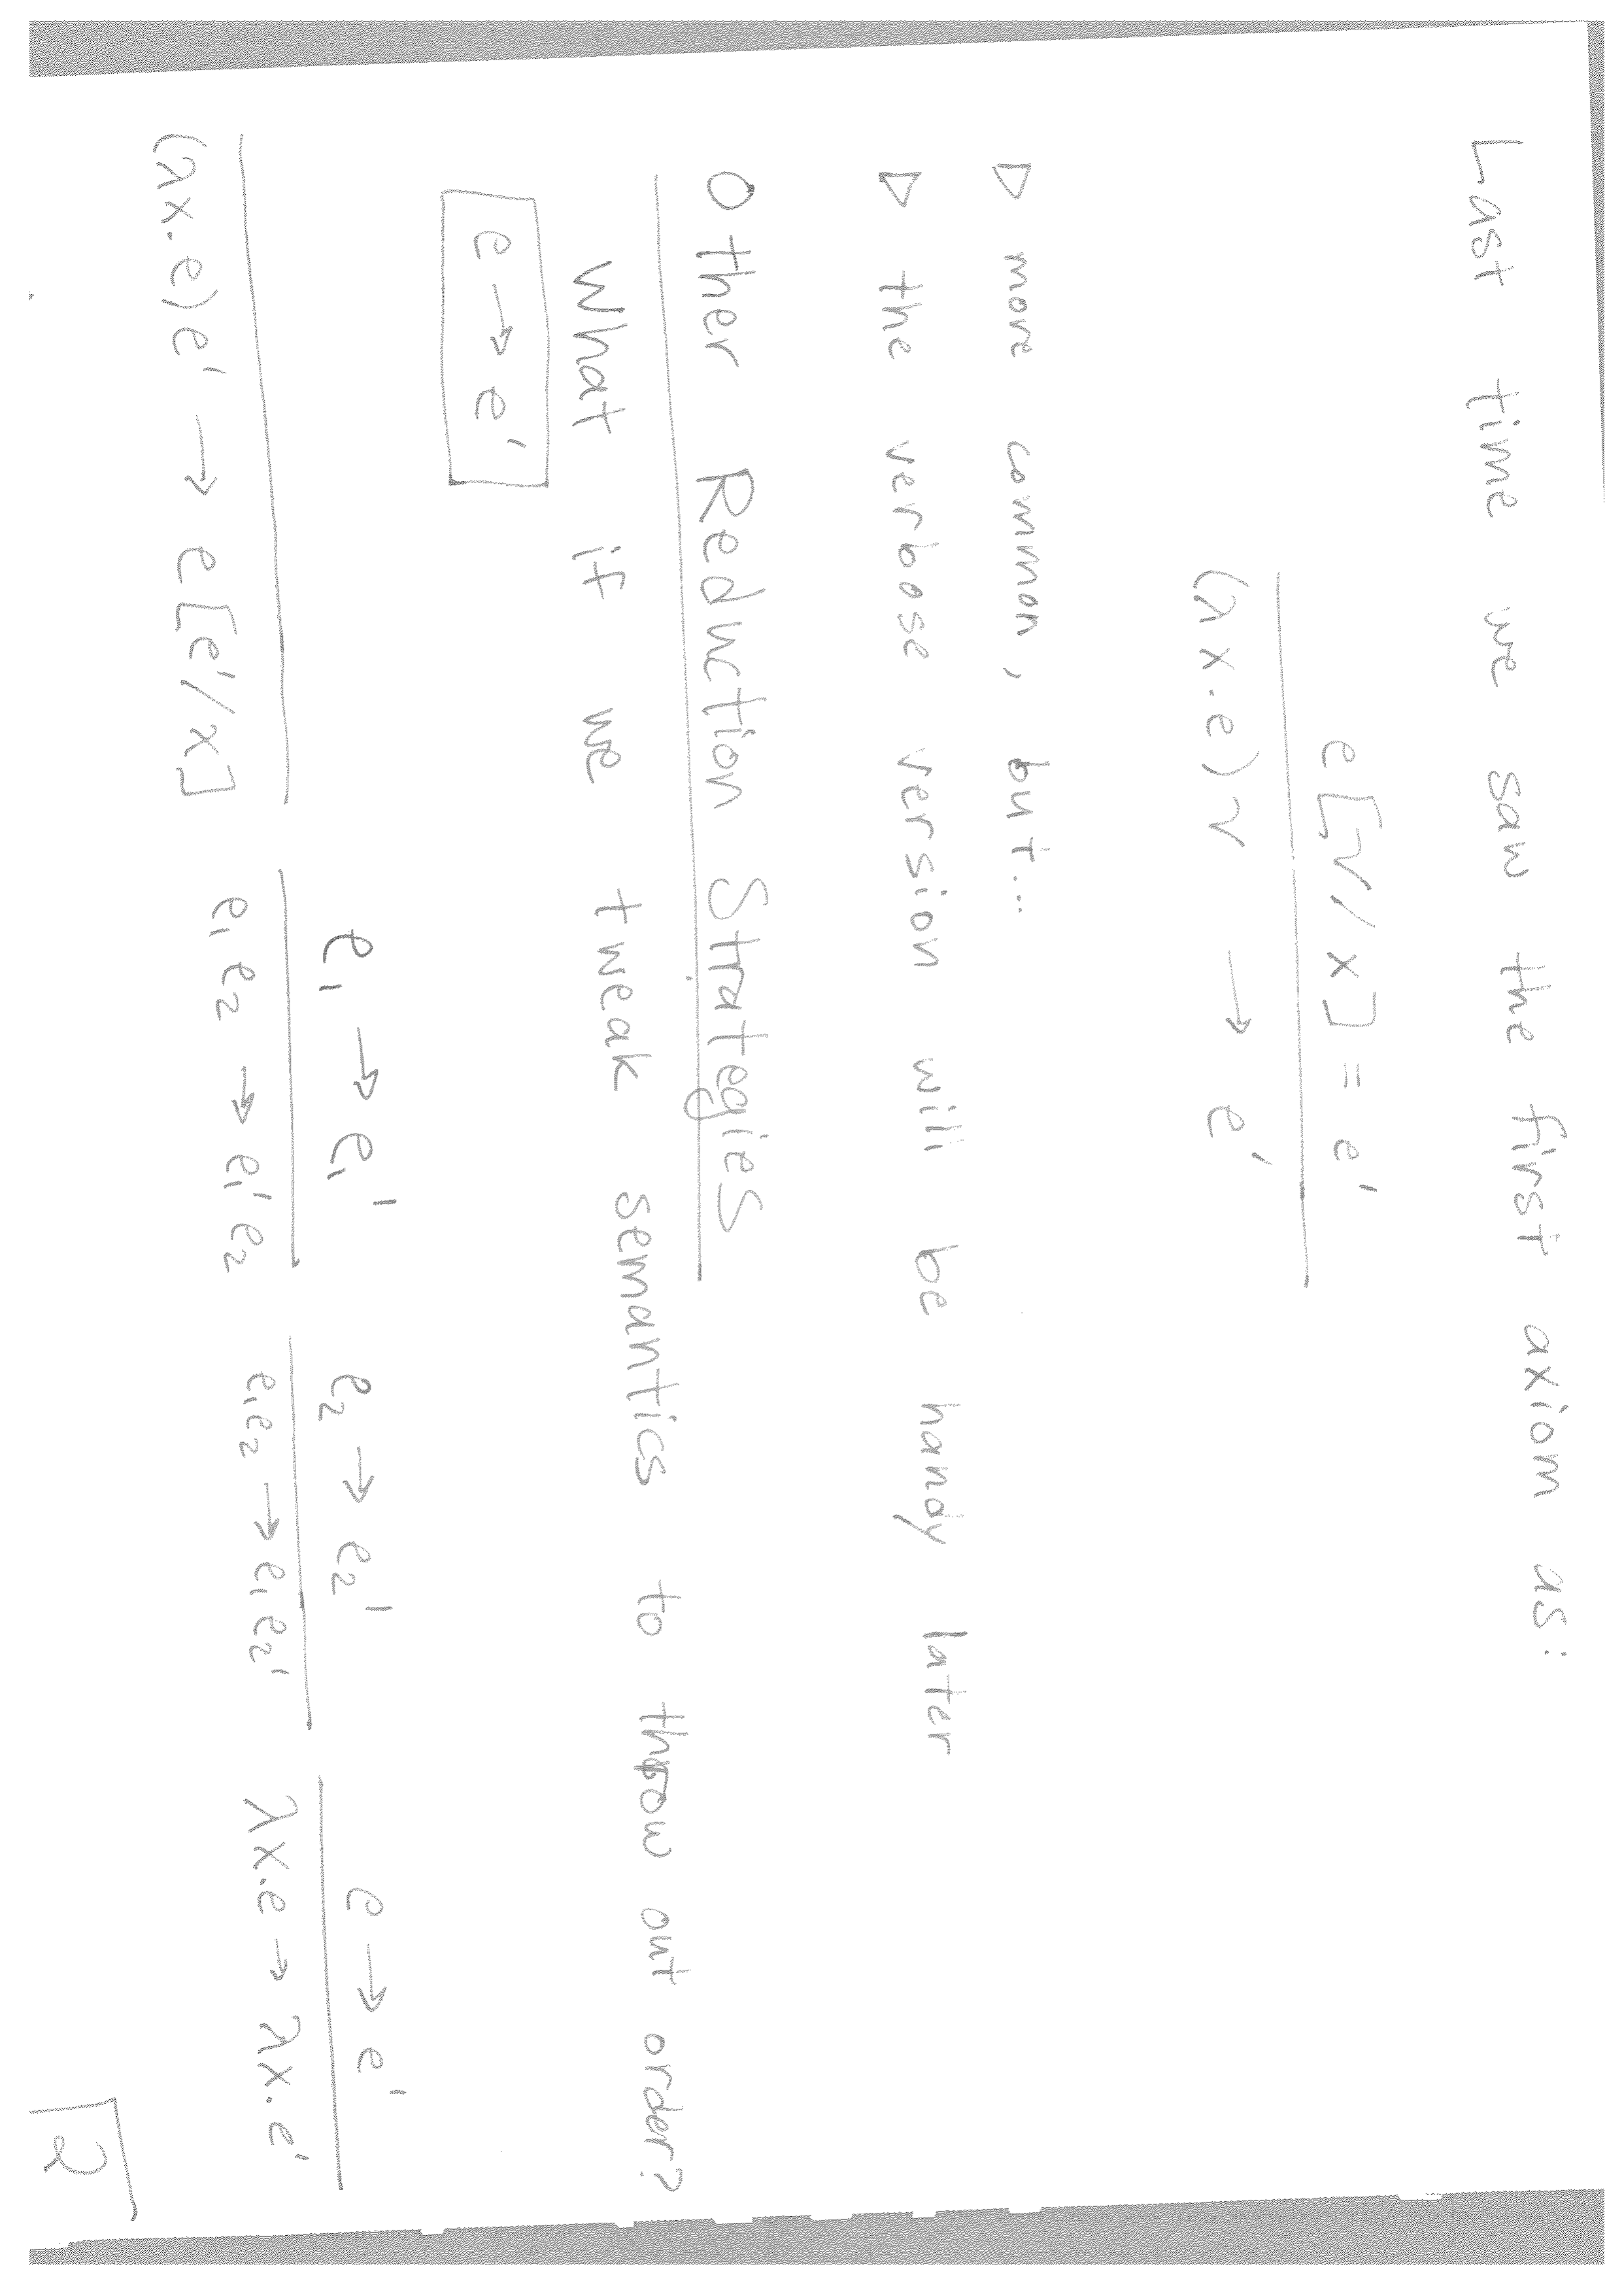 Last time we saw the first axiom as:
e[v/x] = e'
(λx.e) v → e'
▷ more common, but...
▷ the verbose version will be handy later
Other Reduction Strategies
What if we tweak semantics to throw out order?
e → e'
e₁ → e₁' e₂ → e₂' e → e'
(λx.e) e' → e[e'/x] e₁ e₂ → e₁' e₂ e₁ e₂ → e₁ e₂' λx.e → λx.e'
2